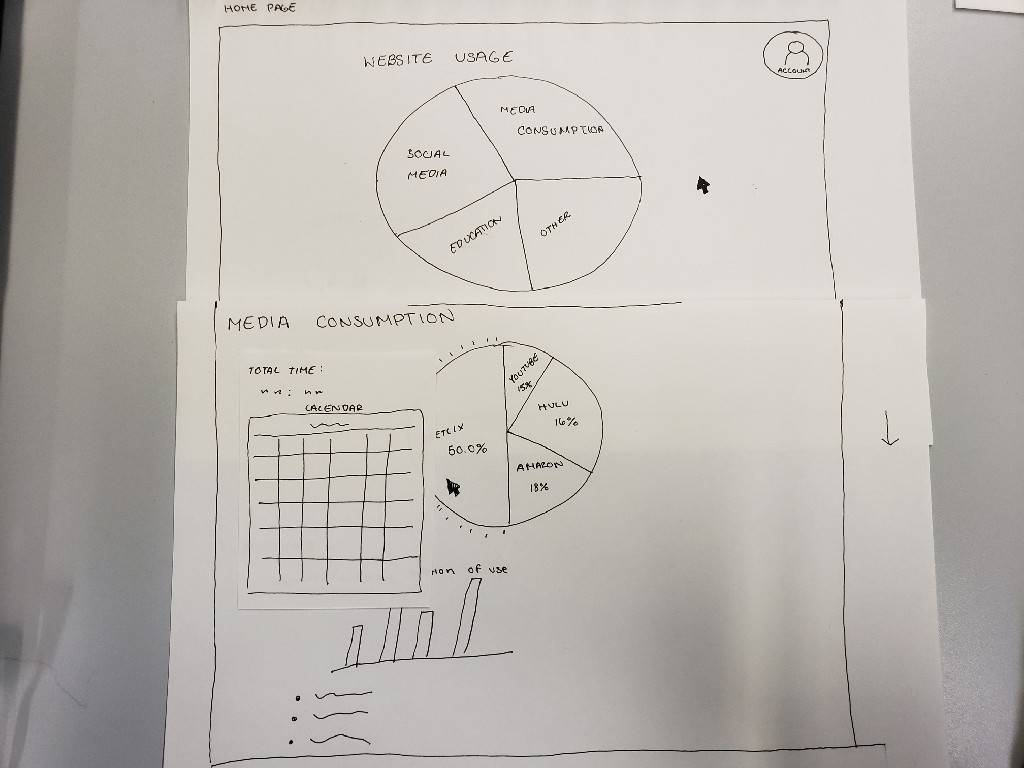 HOME PAGE
WEBSITE USAGE
ACCOUNT
MEDIA
CONSUMPTION
SOCIAL
MEDIA
EDUCATION
OTHER
MEDIA CONSUMPTION
TOTAL TIME:
CALENDAR
YOUTUBE
15%
HULU
16%
ETLIX
50.0%
AMAZON
18%
of use